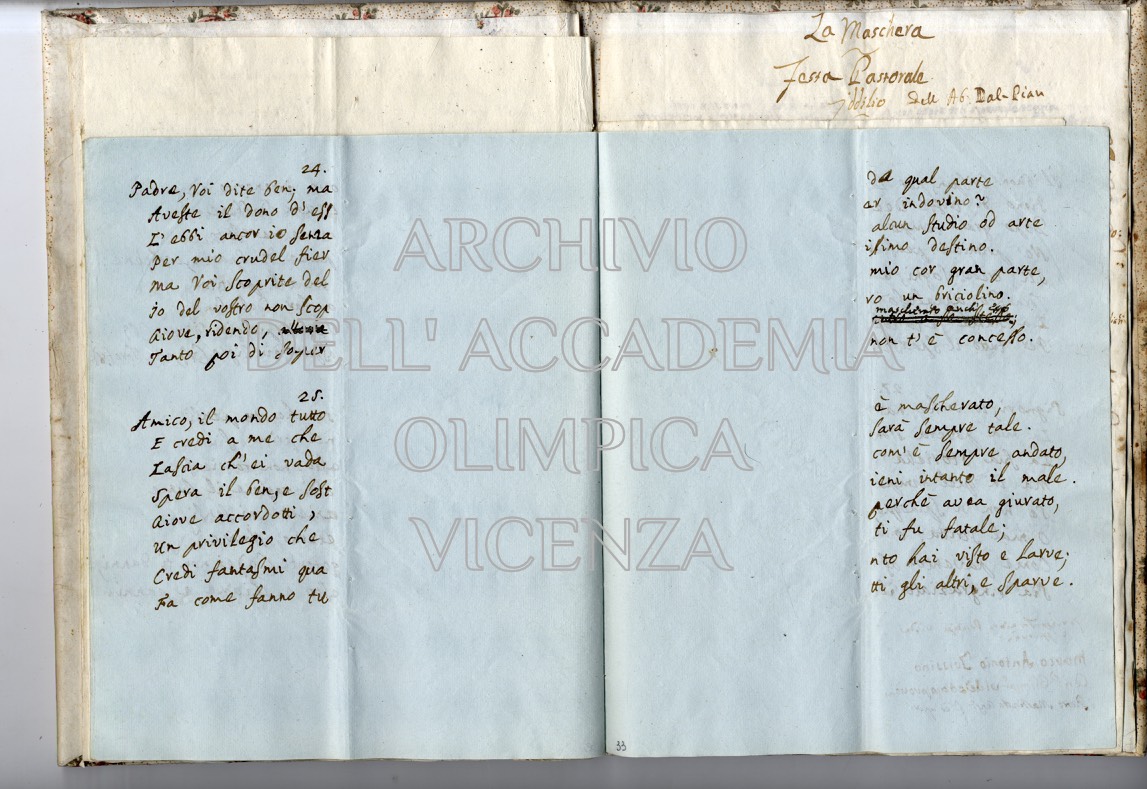 La Maschera
Festa Pastorale
Idilio dell Ab. Dal-Pian
24.
Padre, Voi dite ben; ma da qual parte
Aveste il dono d'ess er indovino?
L'ebbi ancor io senza alcun studio od arte
Per mio crudel fier issimo destino.
ma Voi scoprite del mio cor gran parte,
io del vostro non scop ro un briciolino.
Giove, ridendo, mascherato
Tanto poi di saper non t'è concesso.
25.
Amico, il mondo tutto è mascherato,
E credi a me che sarà sempre tale.
Lascia ch'ei vada com'è sempre andato,
Spera il ben, e sost ieni intanto il male.
Giove accordotti, perchè avea giurato,
Un privilegio che ti fu fatale;
Credi fantasmi qua nto hai visto e larve;
Fa come fanno tu tti gli altri, e sparve.
33
ARCHIVIO
DELL' ACCADEMIA
OLIMPICA
VICENZA